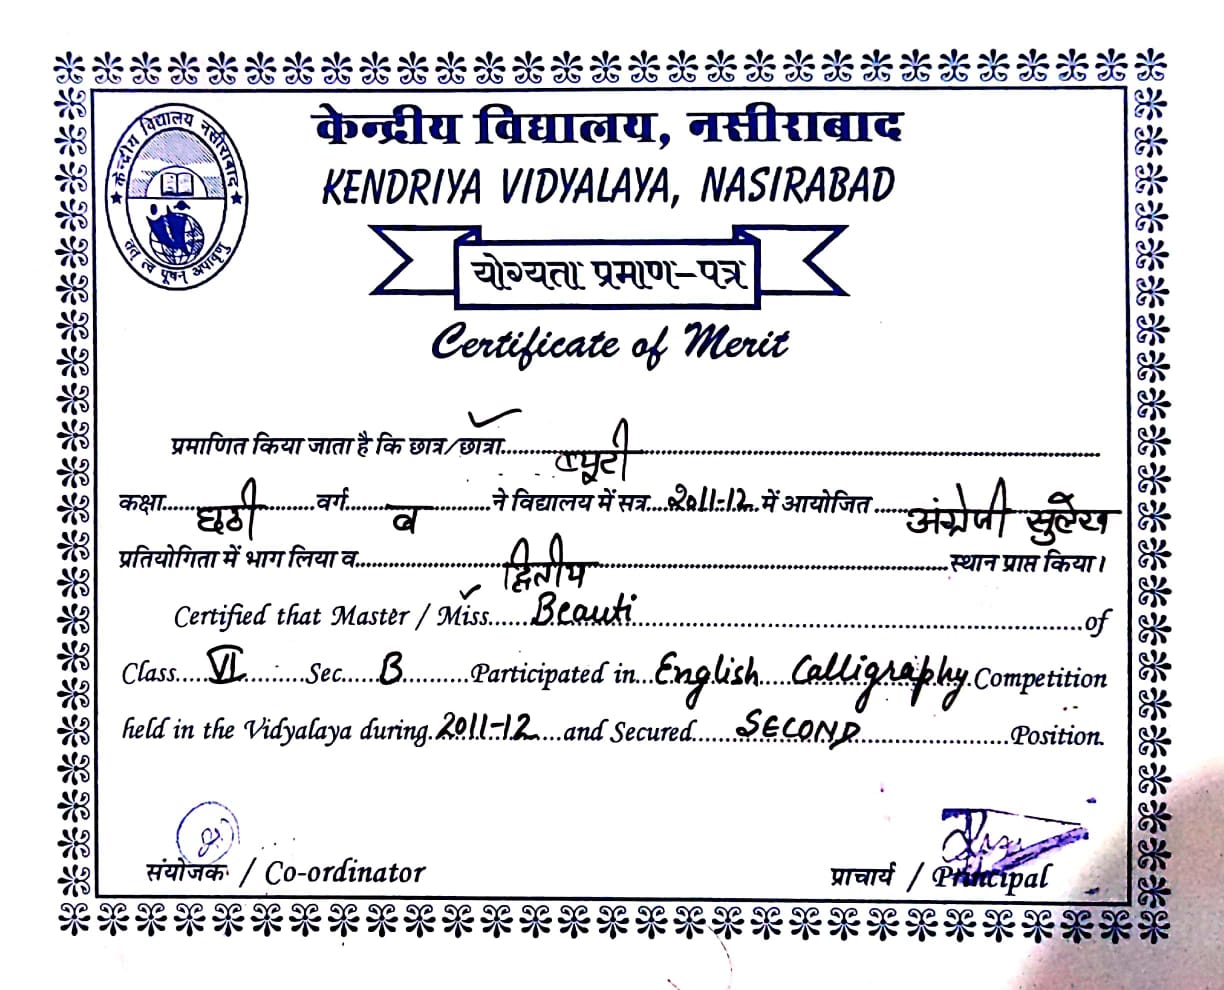 केन्द्रीय विद्यालय नसीराबाद
तत् त्वं पूषन् अपावृणु
केन्द्रीय विद्यालय, नसीराबाद
KENDRIYA VIDYALAYA, NASIRABAD
योग्यता प्रमाण-पत्र
Certificate of Merit
प्रमाणित किया जाता है कि छात्र/छात्रा ब्यूटी
कक्षा छठी वर्ग ब ने विद्यालय में सत्र 2011-12 में आयोजित अंग्रेजी सुलेख
प्रतियोगिता में भाग लिया व द्वितीय स्थान प्राप्त किया।
Certified that Master / Miss Beauti of
Class VI Sec B Participated in English Calligraphy Competition
held in the Vidyalaya during 2011-12 and Secured SECOND Position.
संयोजक / Co-ordinator
प्राचार्य / Principal